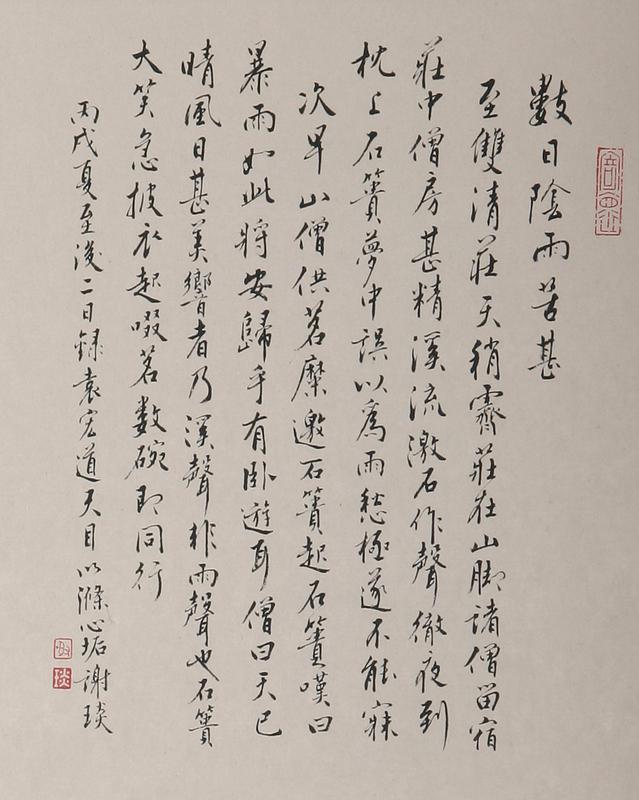 數日陰雨苦甚
至雙清莊天稍霽莊在山脚諸僧留宿
莊中僧房甚精溪流激石作聲徹夜到
枕上石簣夢中誤以爲雨愁極遂不能寐
次早山僧供茗糜邀石簣起石簣嘆曰
暴雨如此將安歸乎有卧遊耳僧曰天已
晴風日甚美響者乃溪聲非雨聲也石簣
大笑急披衣起啜茗數碗即同行
丙戌夏至後二日錄袁宏道天目以滌心垢謝琰